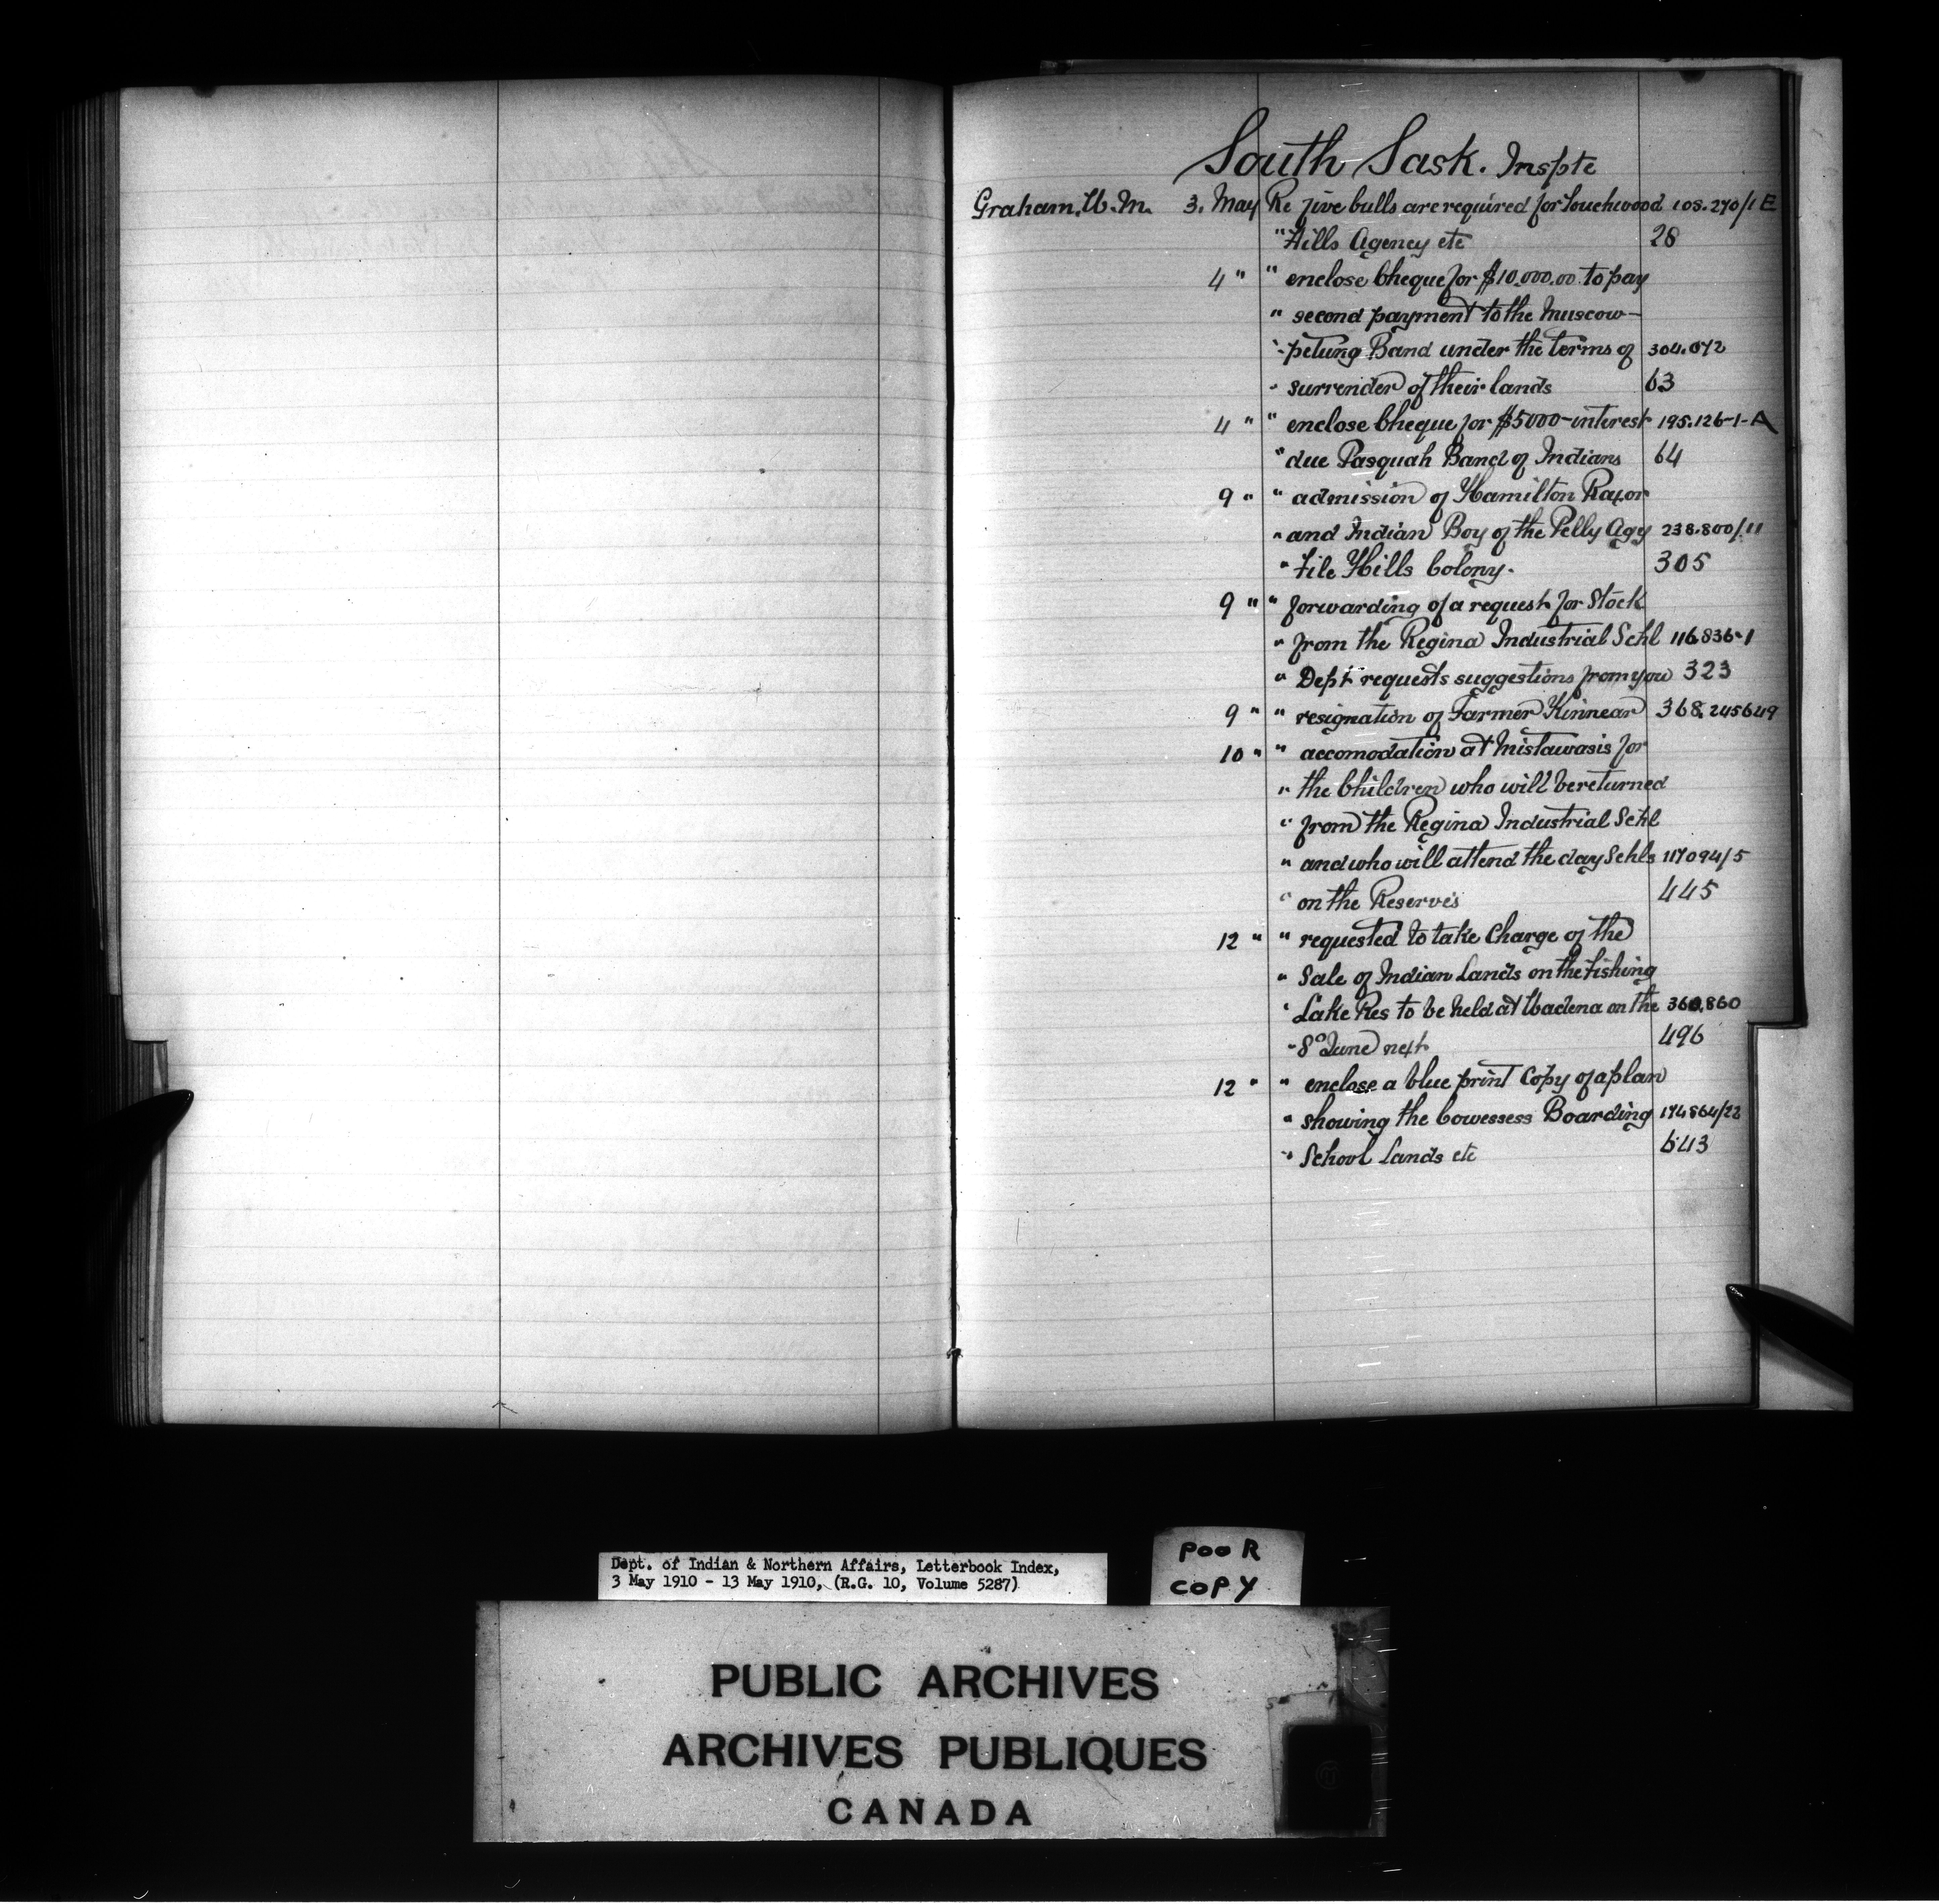 South Sask. Inspte
Graham. W. M. 3. May Re five bulls are required for Touchwood 108.270/1 E
" Hills Agency etc 28
4 " " enclose Cheque for $10.000.00 to pay
" second payment to the Muscow-
"-petung Band under the terms of 304.072
" surrender of their lands 63
4 " " enclose Cheque for $5000- interest 195.126-1-A
" due Pasquah Band of Indians 64
9 " " admission of Hamilton Razor
" and Indian Boy of the Pelly Agy 238.800/11
" File Hills Colony. 305
9 " " forwarding of a request for Stock
" from the Regina Industrial Schl 116.836-1
" Dept requests suggestions from you 323
9 " " resignation of Farmer Kinnear 368. 245649
10 " " accomodation at Mistawasis for
" the Children who will be returned
" from the Regina Industrial Schl
" and who will attend the day Schls 117094/5
" on the Reserves 445
12 " " requested to take Charge of the
" Sale of Indian Lands on the Fishing
" Lake Res to be held at Wadena on the 360.860
" 8o June next 496
12 " " enclose a blue print Copy of a plan
" showing the Cowessess Boarding 174864/22
" School Lands etc 643
Dept. of Indian & Northern Affairs, Letterbook Index,
3 May 1910 - 13 May 1910, (R.G. 10, Volume 5287)
POOR
COPY
PUBLIC ARCHIVES
ARCHIVES PUBLIQUES
CANADA